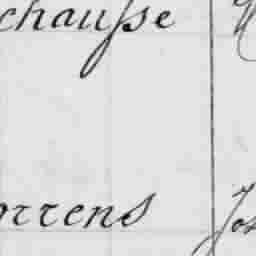 chauſse
orrens Jos